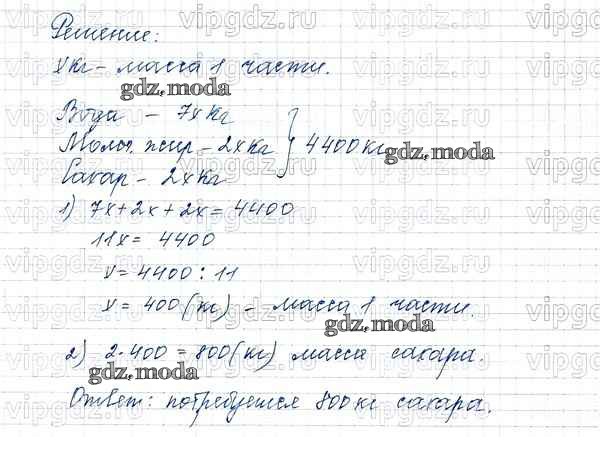 Решение:
х кг - масса 1 части.
gdz.moda
Вода - 7х кг
Молоч. жир - 2х кг } 4400 кг
gdz.moda
Сахар - 2х кг
1) 7х+2х+2х=4400
11х= 4400
х=4400:11
х= 400 (кг) - масса 1 части.
gdz.moda
2) 2·400=800 (кг) масса сахара.
gdz.moda
Ответ: потребуется 800 кг сахара.
vipgdz.ru